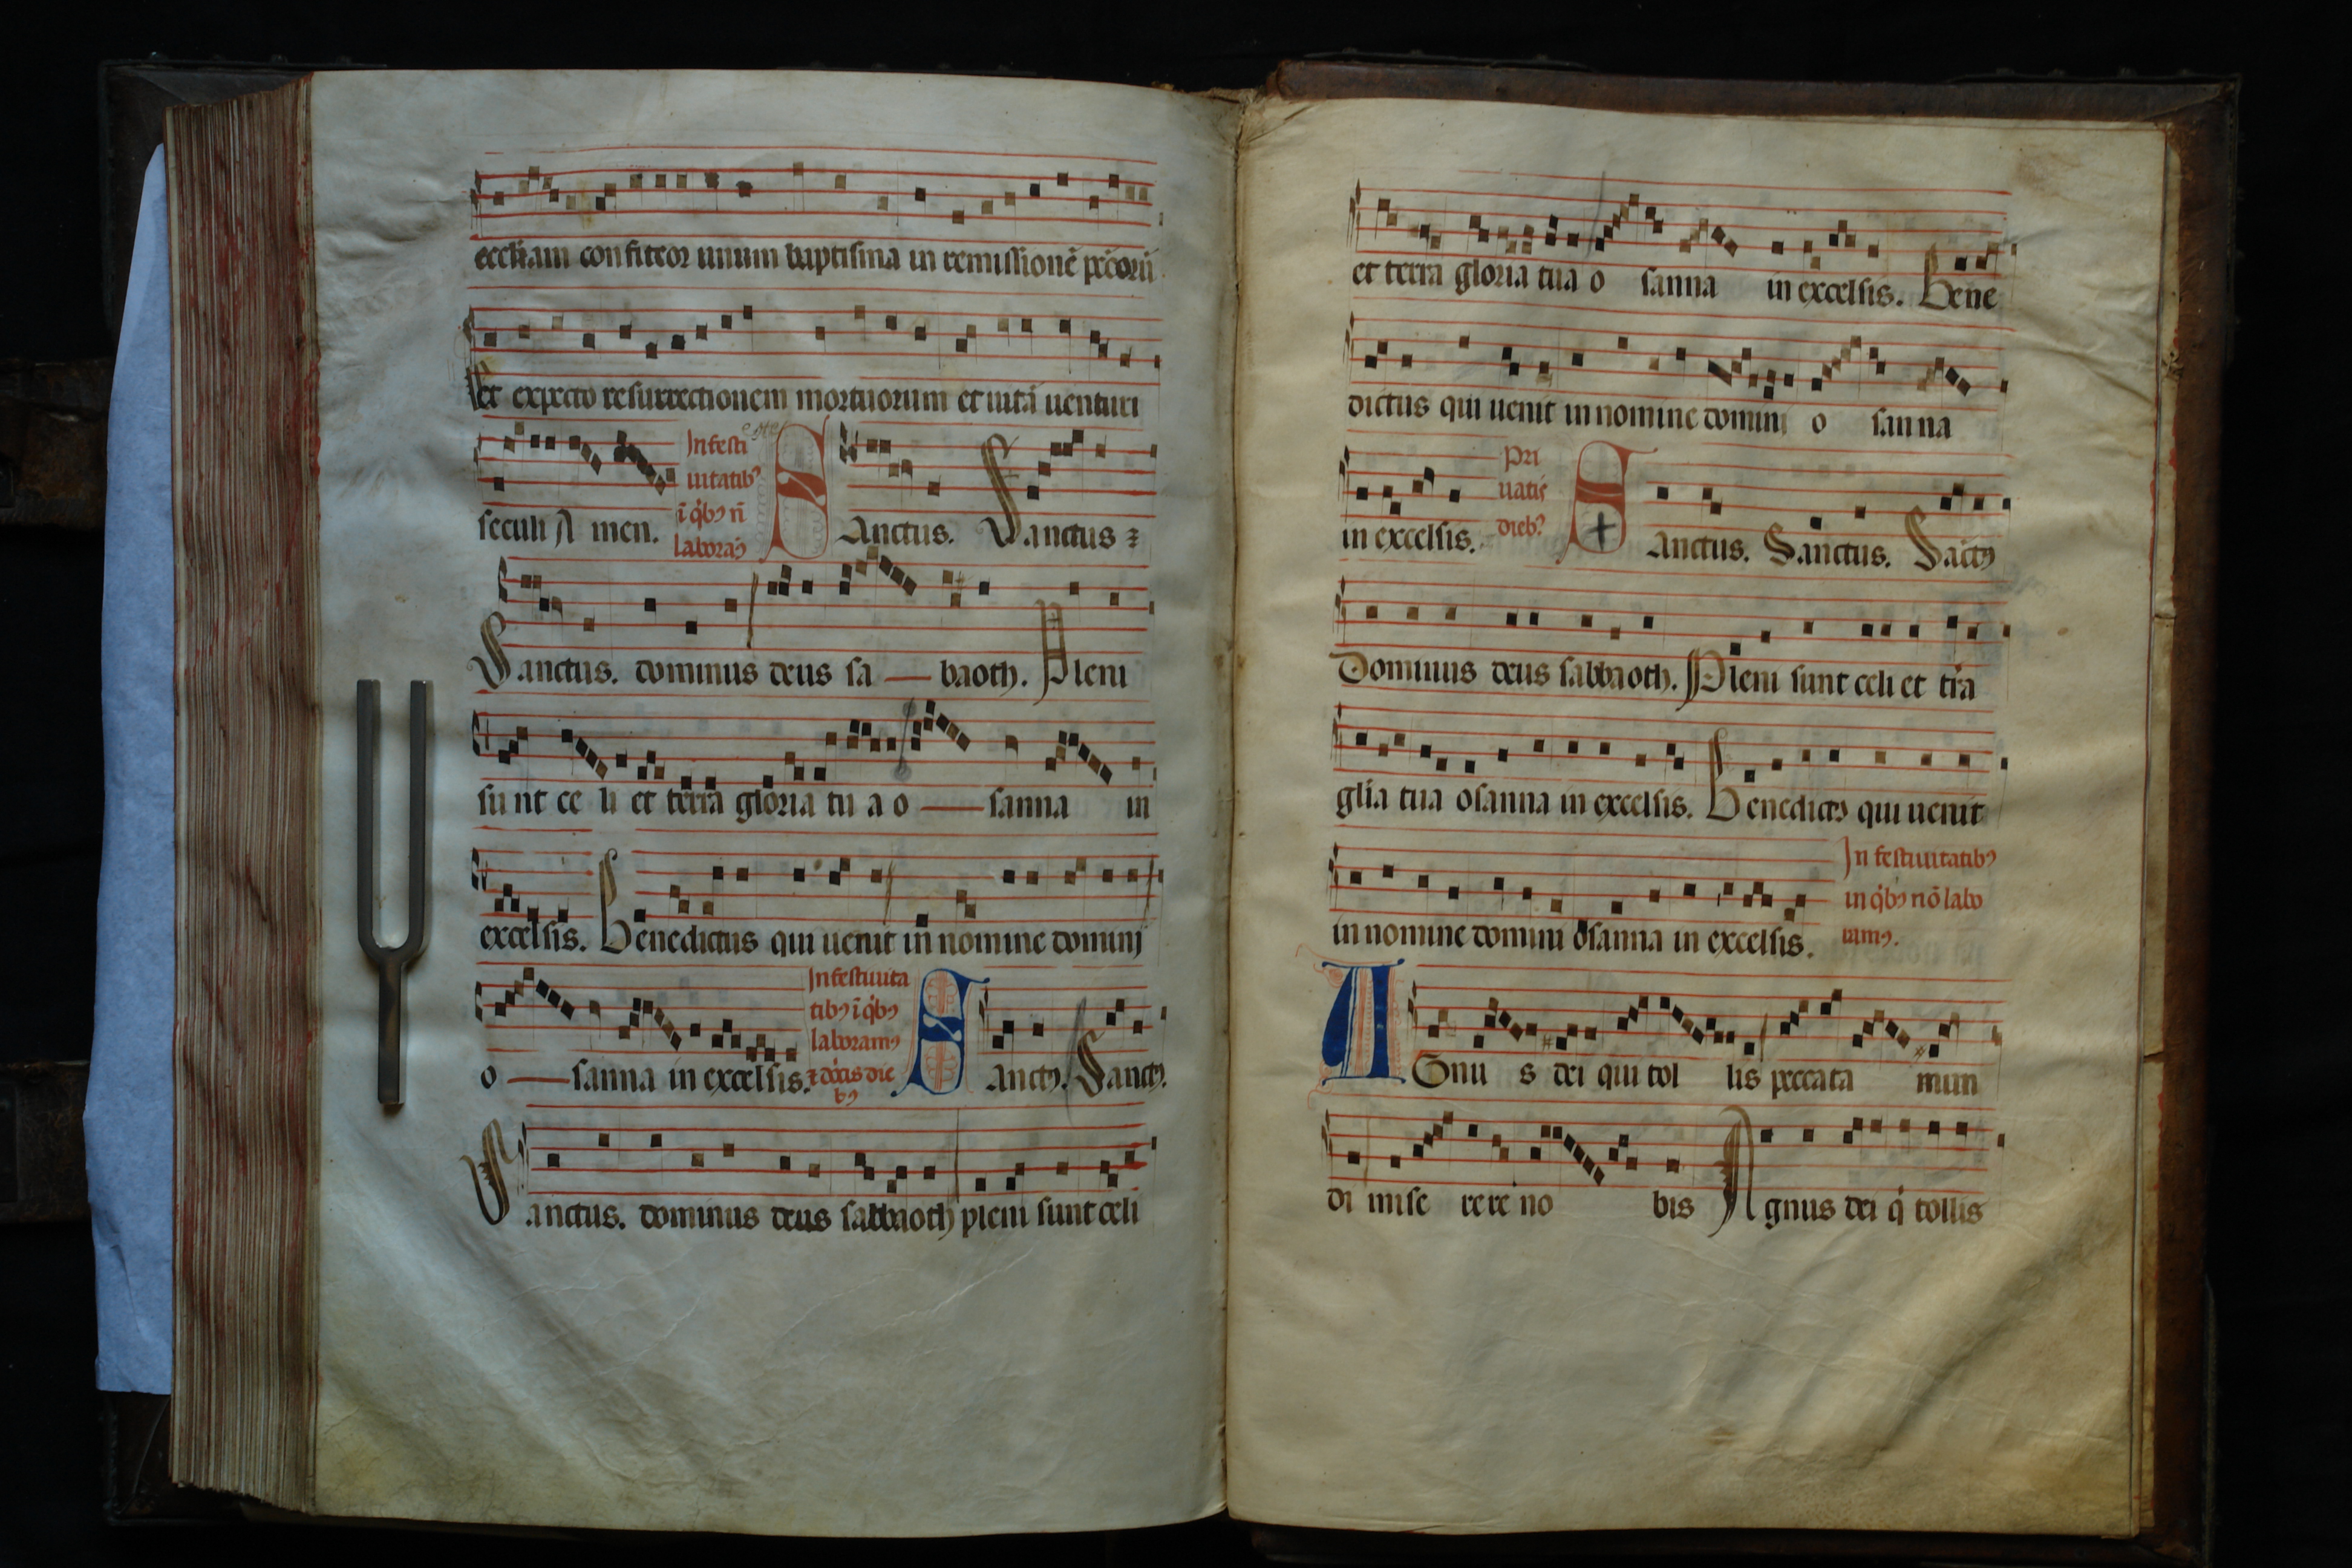 eccłiam confiteor unum baptisma in remissionē pccōrū
Et expecto resurrectionem mortuorum et uitā uenturi
seculi A men. In festi uitatibꝰ ī q̇bꝰ n̄ laboraꝰ Sanctus. Sanctus ⁊
Sanctus. dominus deus sa — baoth. Pleni
sunt ce li et terra gloria tu a o — sanna in
excelsis. Benedictus qui uenit in nomine dominj
o — sanna in excelsis. In festiuita tibꝰ ī q̇bꝰ laboramꝰ ⁊ dōīs die bꝰ Sanctꝰ. Sanctꝰ.
Sanctus. dominus deus sabbaoth pleni sunt celi
et terra gloria tua o sanna in excelsis. Bene
dictus qui uenit in nomine domini o sanna
in excelsis. Pri uatis diebꝰ Sanctus. Sanctus. Sāctꝰ
Dominus deus sabbaoth. Pleni sunt celi et tr̄a
glīa tua osanna in excelsis. Benedictꝰ qui uenit
in nomine domini osanna in excelsis. In festiuitatibꝰ in q̇bꝰ nō labo ramꝰ.
AGnu s dei qui tol lis peccata mun
di mise re re no bis Agnus dei q̇ tollis